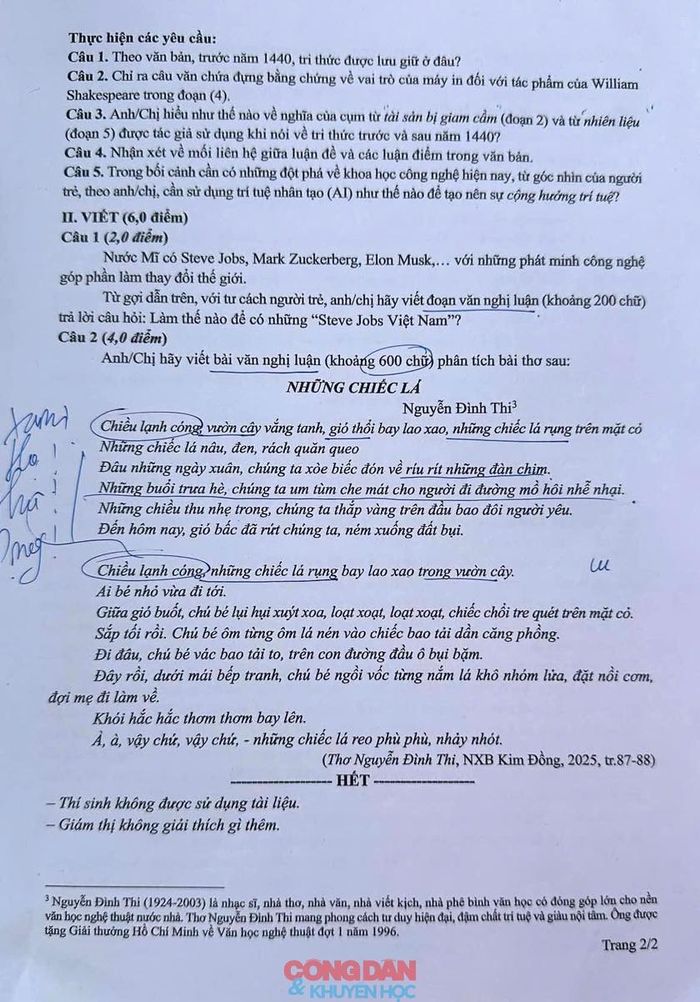 Thực hiện các yêu cầu:
Câu 1. Theo văn bản, trước năm 1440, tri thức được lưu giữ ở đâu?
Câu 2. Chỉ ra câu văn chứa đựng bằng chứng về vai trò của máy in đối với tác phẩm của William
Shakespeare trong đoạn (4).
Câu 3. Anh/Chị hiểu như thế nào về nghĩa của cụm từ tài sản bị giam cầm (đoạn 2) và từ nhiên liệu
(đoạn 5) được tác giả sử dụng khi nói về tri thức trước và sau năm 1440?
Câu 4. Nhận xét về mối liên hệ giữa luận đề và các luận điểm trong văn bản.
Câu 5. Trong bối cảnh cần có những đột phá về khoa học công nghệ hiện nay, từ góc nhìn của người
trẻ, theo anh/chị, cần sử dụng trí tuệ nhân tạo (AI) như thế nào để tạo nên sự cộng hưởng trí tuệ?
II. VIẾT (6,0 điểm)
Câu 1 (2,0 điểm)
Nước Mĩ có Steve Jobs, Mark Zuckerberg, Elon Musk,… với những phát minh công nghệ
góp phần làm thay đổi thế giới.
Từ gợi dẫn trên, với tư cách người trẻ, anh/chị hãy viết đoạn văn nghị luận (khoảng 200 chữ)
trả lời câu hỏi: Làm thế nào để có những “Steve Jobs Việt Nam”?
Câu 2 (4,0 điểm)
Anh/Chị hãy viết bài văn nghị luận (khoảng 600 chữ) phân tích bài thơ sau:
NHỮNG CHIẾC LÁ
Nguyễn Đình Thi³
Chiều lạnh cóng, vườn cây vắng tanh, gió thổi bay lao xao, những chiếc lá rụng trên mặt cỏ
Những chiếc lá nâu, đen, rách quăn queo
Đâu những ngày xuân, chúng ta xòe biếc đón về ríu rít những đàn chim.
Những buổi trưa hè, chúng ta um tùm che mát cho người đi đường mồ hôi nhễ nhại.
Những chiều thu nhẹ trong, chúng ta thắp vàng trên đầu bao đôi người yêu.
Đến hôm nay, gió bấc đã rứt chúng ta, ném xuống đất bụi.
Chiều lạnh cóng, những chiếc lá rụng bay lao xao trong vườn cây.
Ai bé nhỏ vừa đi tới.
Giữa gió buốt, chú bé lụi hụi xuýt xoa, loạt xoạt, loạt xoạt, chiếc chổi tre quét trên mặt cỏ.
Sắp tối rồi. Chú bé ôm từng ôm lá nén vào chiếc bao tải dần căng phồng.
Đi đâu, chú bé vác bao tải to, trên con đường đầu ô bụi bặm.
Đây rồi, dưới mái bếp tranh, chú bé ngồi vốc từng nắm lá khô nhóm lửa, đặt nồi cơm,
đợi mẹ đi làm về.
Khói hắc hắc thơm thơm bay lên.
À, à, vậy chứ, vậy chứ, - những chiếc lá reo phù phù, nhảy nhót.
(Thơ Nguyễn Đình Thi, NXB Kim Đồng, 2025, tr.87-88)
-------------------- HẾT --------------------
– Thí sinh không được sử dụng tài liệu.
– Giám thị không giải thích gì thêm.
³ Nguyễn Đình Thi (1924-2003) là nhạc sĩ, nhà thơ, nhà văn, nhà viết kịch, nhà phê bình văn học có đóng góp lớn cho nền
văn học nghệ thuật nước nhà. Thơ Nguyễn Đình Thi mang phong cách tư duy hiện đại, đậm chất trí tuệ và giàu nội tâm. Ông được
tặng Giải thưởng Hồ Chí Minh về Văn học nghệ thuật đợt 1 năm 1996.
Trang 2/2
CÔNG DÂN
& KHUYẾN HỌC